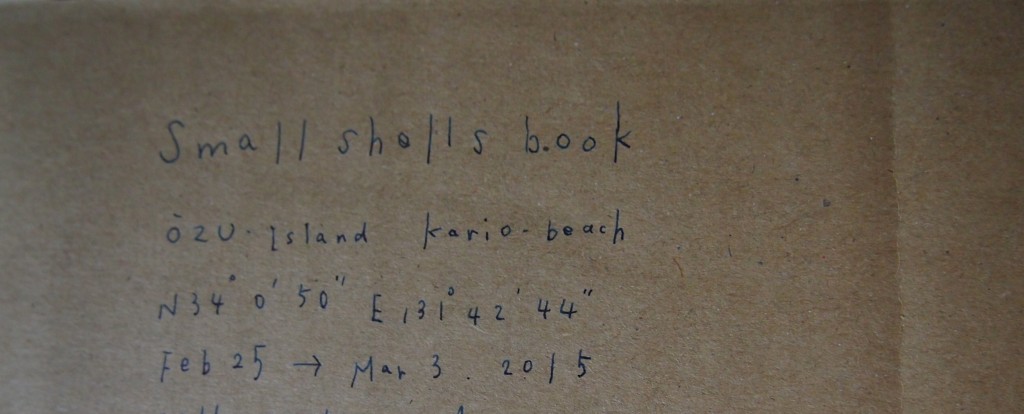 Small shells book
ōzu. Island Kario-beach
N34° 0' 50" E 131° 42' 44"
Feb 25 → Mar 3. 2015